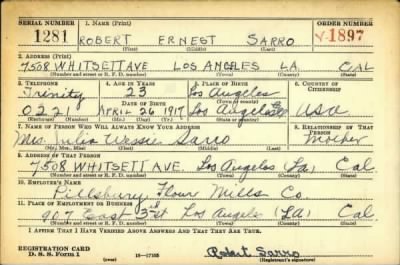 SERIAL NUMBER 1. NAME (Print) ORDER NUMBER
1281 ROBERT ERNEST SARRO V-1897
(First) (Middle) (Last)
2. ADDRESS (Print)
7508 WHITSETT AVE LOS ANGELES LA. CAL
(Number and street or R. F. D. number) (Town) (County) (State)
3. TELEPHONE 4. AGE IN YEARS 5. PLACE OF BIRTH 6. COUNTRY OF CITIZENSHIP
Trinity 23 Los Angeles
DATE OF BIRTH (Town or county)
0221 APRIL 26 1917 Los Angeles USA
(Exchange) (Number) (Mo.) (Day) (Yr.) (State or country)
7. NAME OF PERSON WHO WILL ALWAYS KNOW YOUR ADDRESS 8. RELATIONSHIP OF THAT PERSON
Mrs. Julia Sarro Mother
(Mr., Mrs., Miss) (First) (Middle) (Last)
9. ADDRESS OF THAT PERSON
7508 WHITSETT AVE. Los Angeles (La) Cal
(Number and street or R. F. D. number) (Town) (County) (State)
10. EMPLOYER'S NAME
Pillsbury Flour Mills Co.
11. PLACE OF EMPLOYMENT OR BUSINESS
907 East 3rd St Los Angeles (LA) Cal
(Number and street or R. F. D. number) (Town) (County) (State)
I AFFIRM THAT I HAVE VERIFIED ABOVE ANSWERS AND THAT THEY ARE TRUE.
REGISTRATION CARD
D. S. S. Form 1 (over) 16-17105 Robert Sarro
(Registrant's signature)